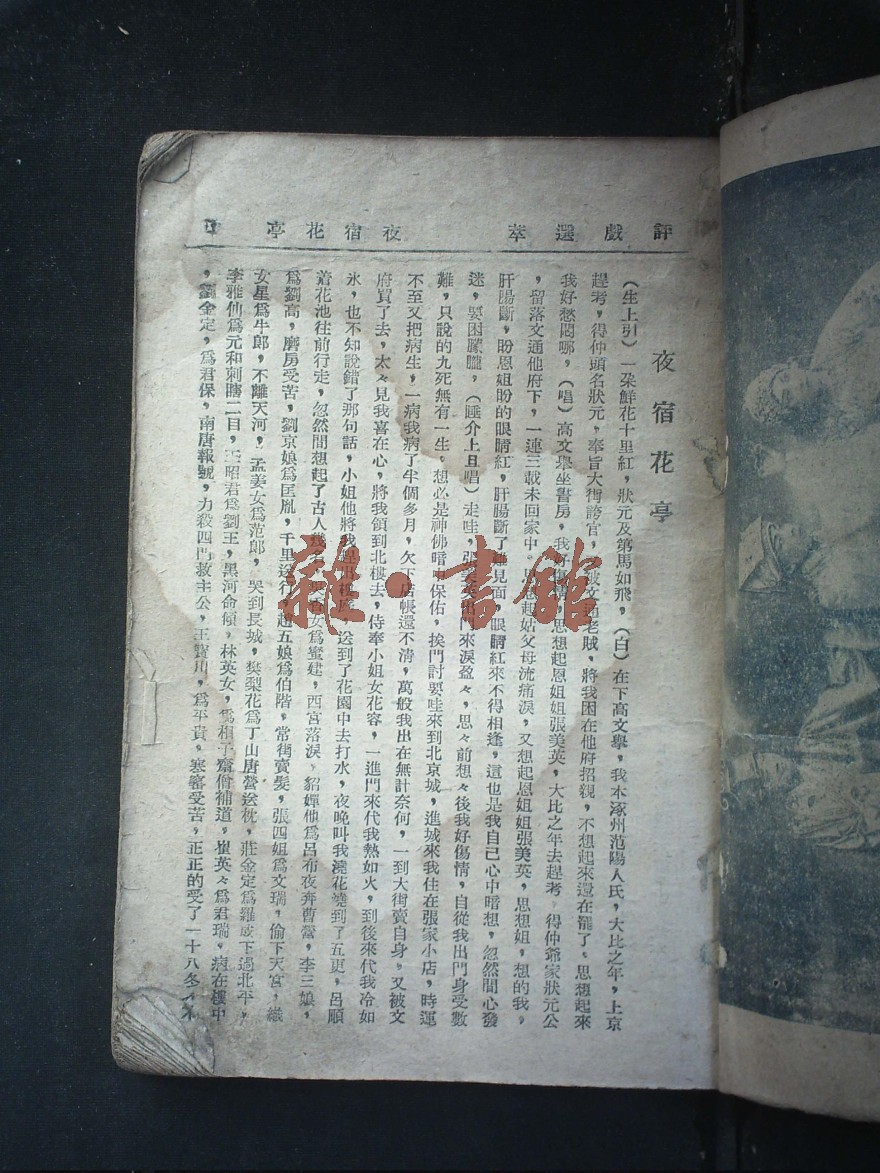 評戲選萃 夜宿花亭
夜宿花亭
(生上引)一朶鮮花十里紅，狀元及第馬如飛，(白)在下高文舉，我本涿州范陽人氏，大比之年，上京
趕考，得仲頭名狀元，奉旨大街誇官，被文通老賊，將我困在他府招親，不想起來還在罷了。思想起來
我好愁悶哪，(唱)高文舉坐書房，我好傷情，思想起恩姐姐張美英，大比之年去趕考，得仲爺家狀元公
，留落文通他府下，一連三載未回家中。思想起姑父母流痛淚，又想起恩姐姐張美英，思想姐，想的我，
肝腸斷，盼恩姐盼的眼睛紅，肝腸斷了難見面，眼睛紅來不得相逢，這也是我自己心中暗想，忽然間心發
迷，要困朦朧，(睡介上旦唱)走哇，張美英出門來淚盈々，思々前想々後我好傷情，自從我出門身受數
難，只說的九死無有一生。想必是神佛暗中保佑，挨門討要哇來到北京城，進城來我住在張家小店，時運
不至又把病生，一病我病了半個多月，欠下店帳還不清，萬般我出在無計奈何，一到大街賣自身，又被文
府買了去，太々見我喜在心，將我領到北樓去，侍奉小姐女花容，一進門來代我熱如火，到後來代我冷如
氷，也不知說錯了那句話，小姐他將我趕出樓底，送到了花園中去打水，夜晚叫我澆花澆到了五更，呂順
着花池往前行走，忽然間想起了古人幾名，吳香女爲蜜建，西宮落淚，貂嬋他爲呂布夜奔曹營，李三娘，
爲劉高，磨房受苦，劉京娘爲匡胤，千里送行，趙五娘爲伯階，常街賣髮，張四姐爲文瑞，偷下天宮，織
女星爲牛郎，不離天河，孟姜女爲范郎，哭到長城，樊梨花爲丁山唐營送枕，莊金定爲羅成下過北平，
李雅仙爲元和刺瞎二目，王昭君爲劉王，黑河命傾，林英女，爲相子齋僧補道，崔英々爲君瑞，病在樓中
，劉金定，爲君保，南唐報號，力殺四門救主公，王寶川，爲平貴。寒窰受苦，正正的受了一十八冬，
雜·書館